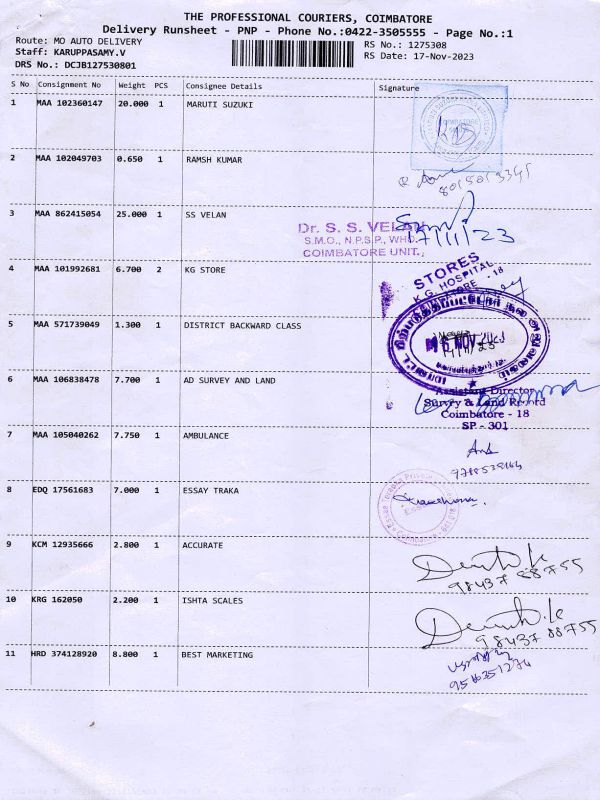 THE PROFESSIONAL COURIERS, COIMBATORE
Delivery Runsheet - PNP - Phone No.:0422-3505555 - Page No.:1
Route: MO AUTO DELIVERY
RS No.: 1275308
Staff: KARUPPASAMY.V
RS Date: 17-Nov-2023
DRS No.: DCJB127530801
S No Consignment No Weight PCS Consignee Details Signature
1 MAA 102360147 20.000 1 MARUTI SUZUKI
COIMBATORE
2 MAA 102049703 0.650 1 RAMSH KUMAR
3 MAA 862415054 25.000 1 SS VELAN
Dr. S. S. VELAN
17/11/23
S.M.O., N.P.S.P., WHO.
COIMBATORE UNIT.,
4 MAA 101992681 6.700 2 KG STORE
STORES
K.G. HOSPITAL
- 18
5 MAA 571739049 1.300 1 DISTRICT BACKWARD CLASS
NOV
6 MAA 106838478 7.700 1 AD SURVEY AND LAND
Assistant Director
Survey & Land Record
Coimbatore - 18
SP - 301
7 MAA 105040262 7.750 1 AMBULANCE
8 EDQ 17561683 7.000 1 ESSAY TRAKA
9 KCM 12935666 2.800 1 ACCURATE
98437 88755
10 KRG 162050 2.200 1 ISHTA SCALES
98437 88755
11 HRD 374128920 8.800 1 BEST MARKETING